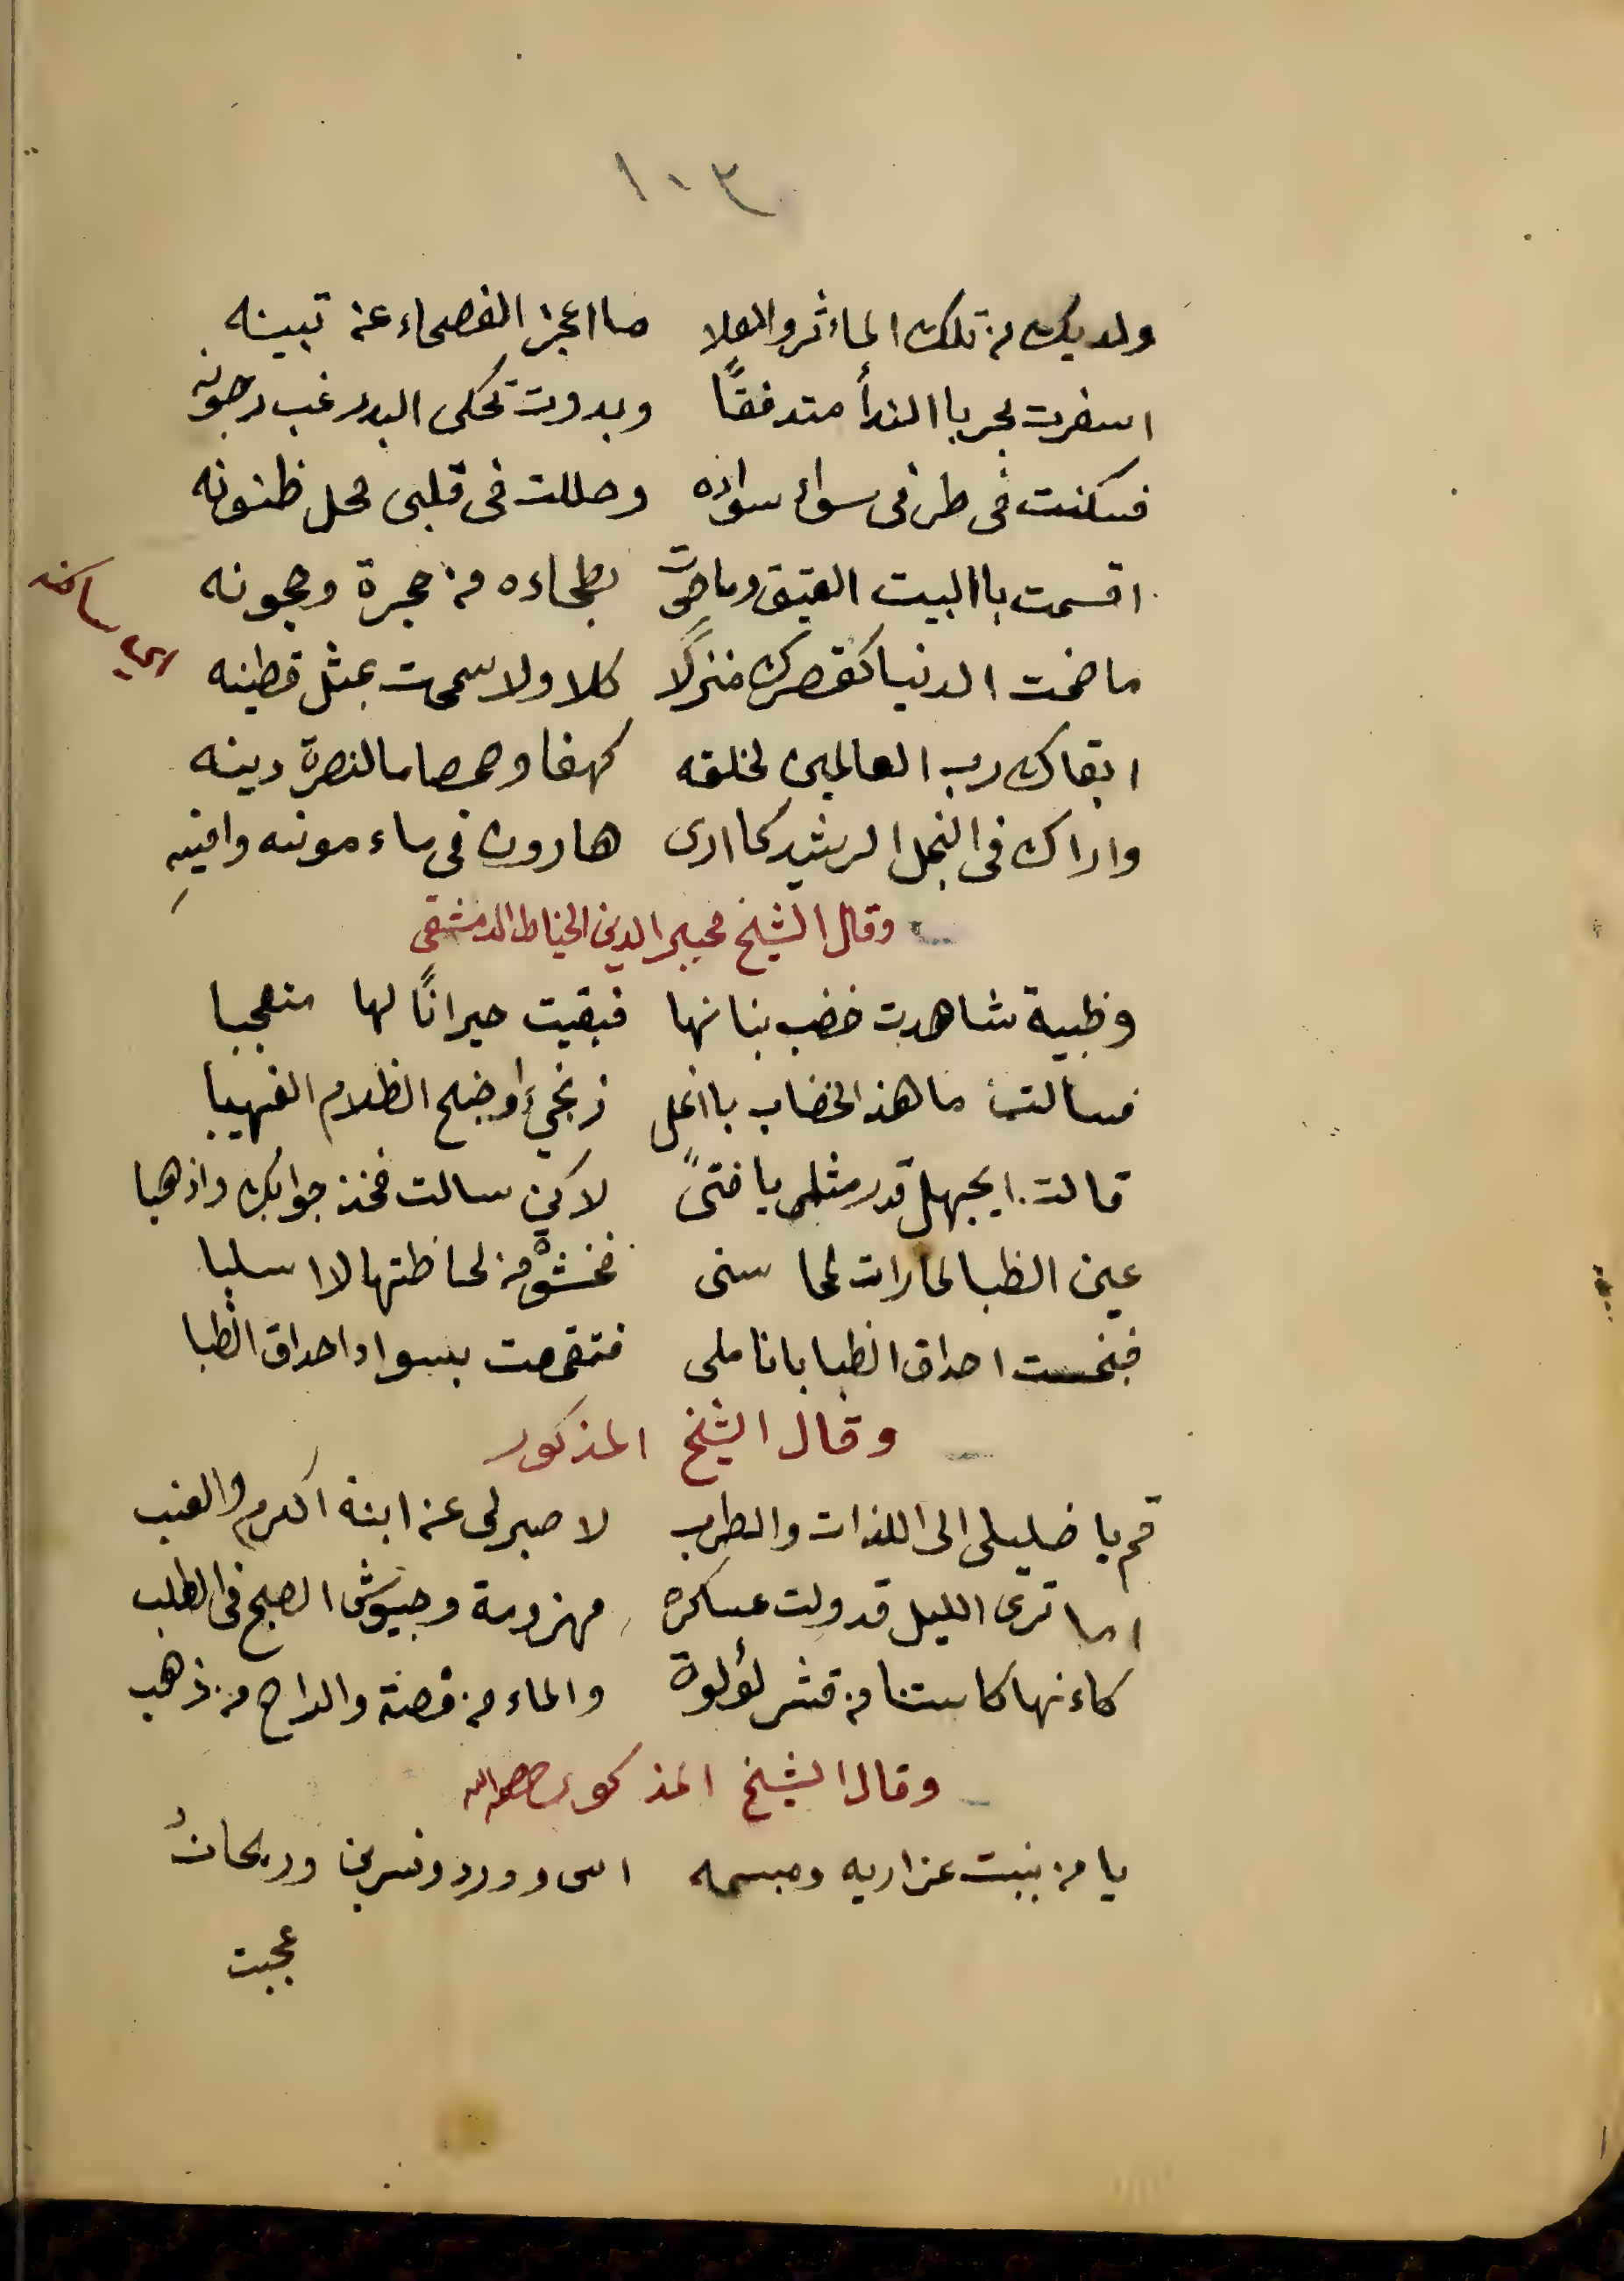 ١٠٣
ولديك من تلك الماءثر والعلا ما اعجز الفصحاء عن تبينه
اسفرت بحر باالندأ متدفقًا وبدوت تحكى البدر غب دجونه
فسكنت فى طرفى سواء سواده وحللت فى قلبى محل ظنونه
اقسمت باالبيت العتيق وما حوت بطحاءه من حجرة وحجونه
اي ساكنه
ما ضمت الدنيا كقصرك منزلًا كلا ولا سمحت بمثل قطينه
ابقاك رب العالمين لخلقه كهفا وصمصاما لنصرة دينه
واراك فى النجل الرشيد كما ارى هارون فى ماءمونه وامينهِ
وقال الشيخ مجير الدين الخياط الدمشقى
وظبية شاهدت خضب بنانها فبقيت حيرانًا لها متعجبا
فسالت ما هذ الخضاب باانمل زنجيء اوضح الظلام الغيهبا
قالت ايجهل قدر مثلى يا فتىً لاكن سالت فخذ جوابك واذهبا
عين الظبا لما رات لمحا سنى فخشوة من لحاظتها لا اسلبا
فبخست احداق الظبا باناملى فتقمصت بسواد احداق الظبا
وقال الشيخ المذكور
قم يا خليلى الى اللذات والطرب لا صبر لى عن ابنة الكرم والعنب
اما ترى الليل قد ولت عساكره مهزومة وجيوش الصبح فى الطلب
كاءنها كاستنا من قشر لؤلوة والماء من فضة والراح من ذهب
وقال الشيخ المذكور رحمه الله
يا من بنبت عذاريه ومبسمه اسى وورد ونسرين وريحانُ
عجبت